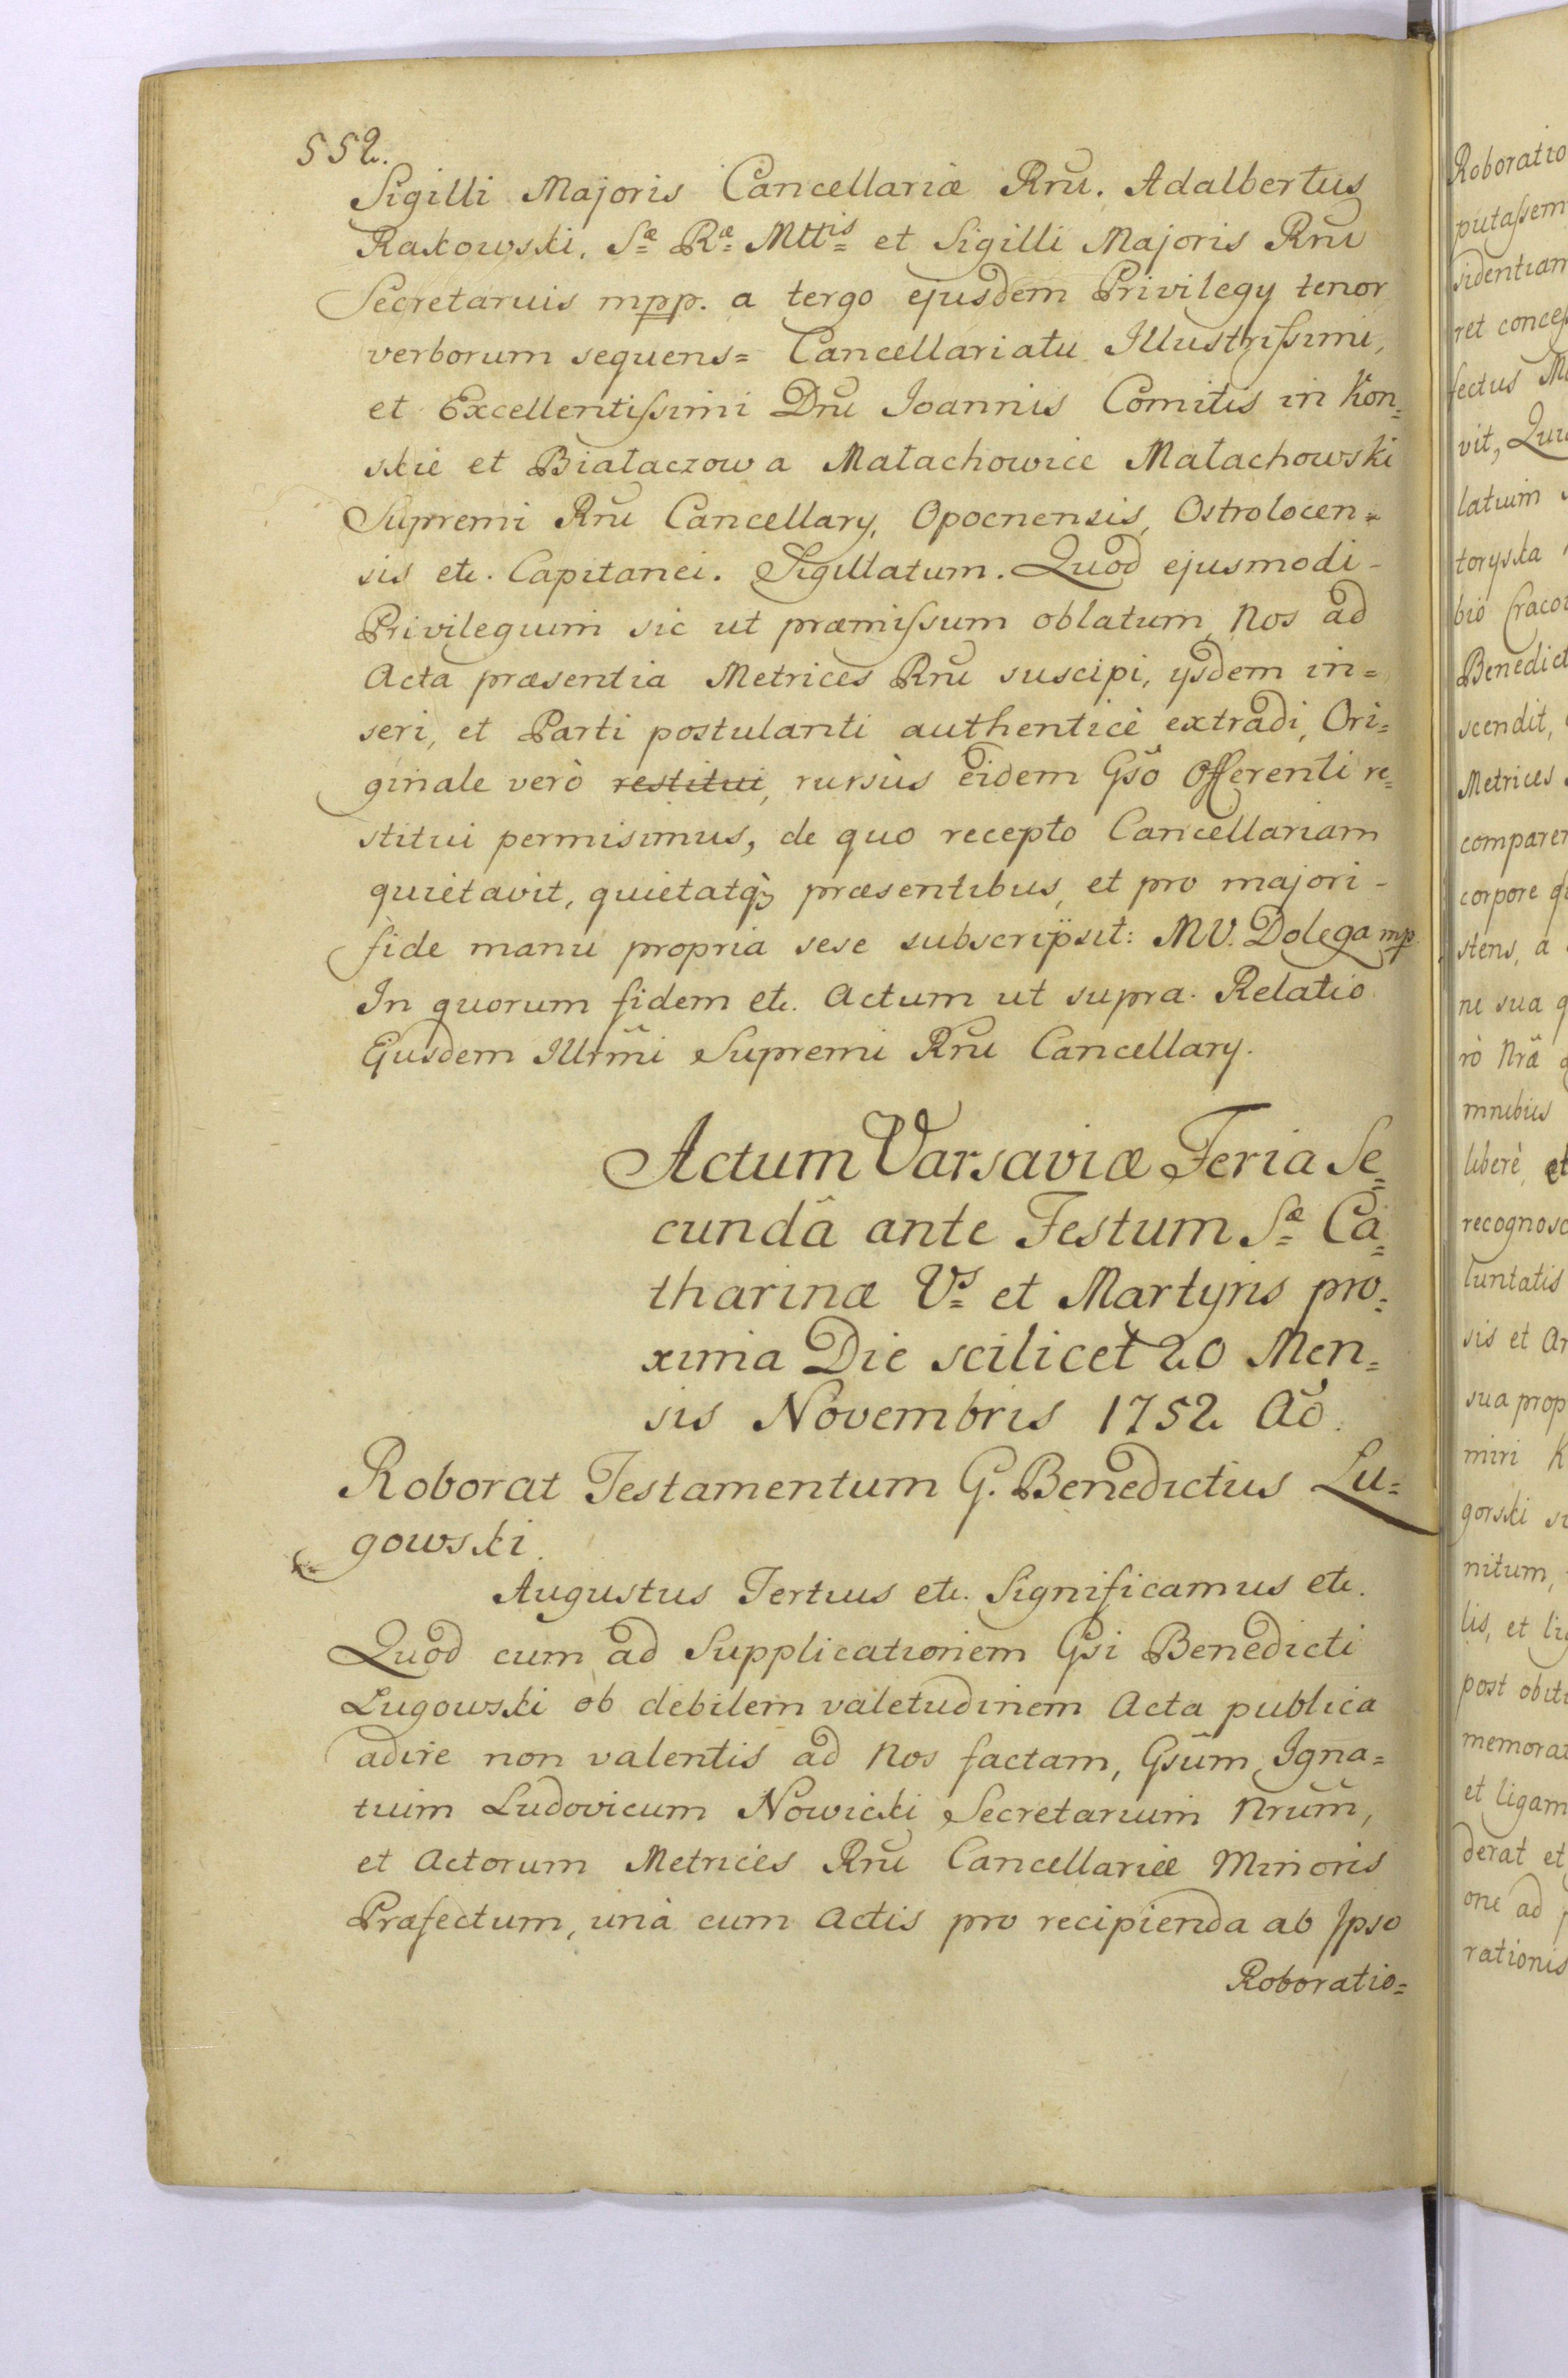 552.
Sigilli Majoris Cancellariæ Rnu. Adalbertus
Rakowski, Sæ Ræ Mttis et Sigilli Majoris Rnu
Secretarius mpp. a tergo ejusdem Privilegy tenor
verborum sequens= Cancellariatu Illustrissimi,
et Excellentissimi Dnu Joannis Comitis in Kon=
skie et Białaczow a Małachowice Małachowski
Supremi Rnu Cancellary, Opocnensis, Ostrolocen=
sis etc. Capitanei. Sigillatum. Quod ejusmodi-
Privilegium sic ut præmissum oblatum, Nos ad
Acta præsentia Metrices Rnu suscipi, ysdem in=
seri, et Parti postulanti authenticè extradi, Ori=
ginale verò restitui, rursùs eidem Gso Offerenti re=
stitui permisimus, de quo recepto Cancellariam
quietavit, quietatq₃ præsentibus, et pro majori-
fide manu propria sese subscripsit: MV. Dolega mp
In quorum fidem etc. Actum ut supra. Relatio
Ejusdem Illrmi Supremi Rnu Cancellary.
Actum Varsaviæ Feria Se=
cundâ ante Festum Sæ Ca=
tharinæ Vs et Martyris pro=
xima Die scilicet 20 Men=
sis Novembris 1752 Aõ.
Roborat Testamentum G. Benedictus Lu=
gowski.
Augustus Tertius etc. Significamus etc.
Quod cum ad Supplicationem Gsi Benedicti
Lugowski ob debilem valetudinem Acta publica
adire non valentis ad Nos factam, Gsum Igna=
tium Ludovicum Nowicki Secretarium Nrum,
et Actorum Metrices Rnu Cancellariæ Minoris
Præfectum, unà cum Actis pro recipienda ab Ipso
Roboratio=
Roboratio
putassem
sidentiam
ret
fectus
vit,
latuim
toryska
bio
Benedict
scendit,
Metrices
comparen
corpore
stens, a
ni sua
rò Nrã
mnibus
liberè, et
recognosc
luntatis
sis et
sua prop
miri K
gorski
nitum,
lis, et
post obit
memorat
et ligam
derat et
one ad
rationis